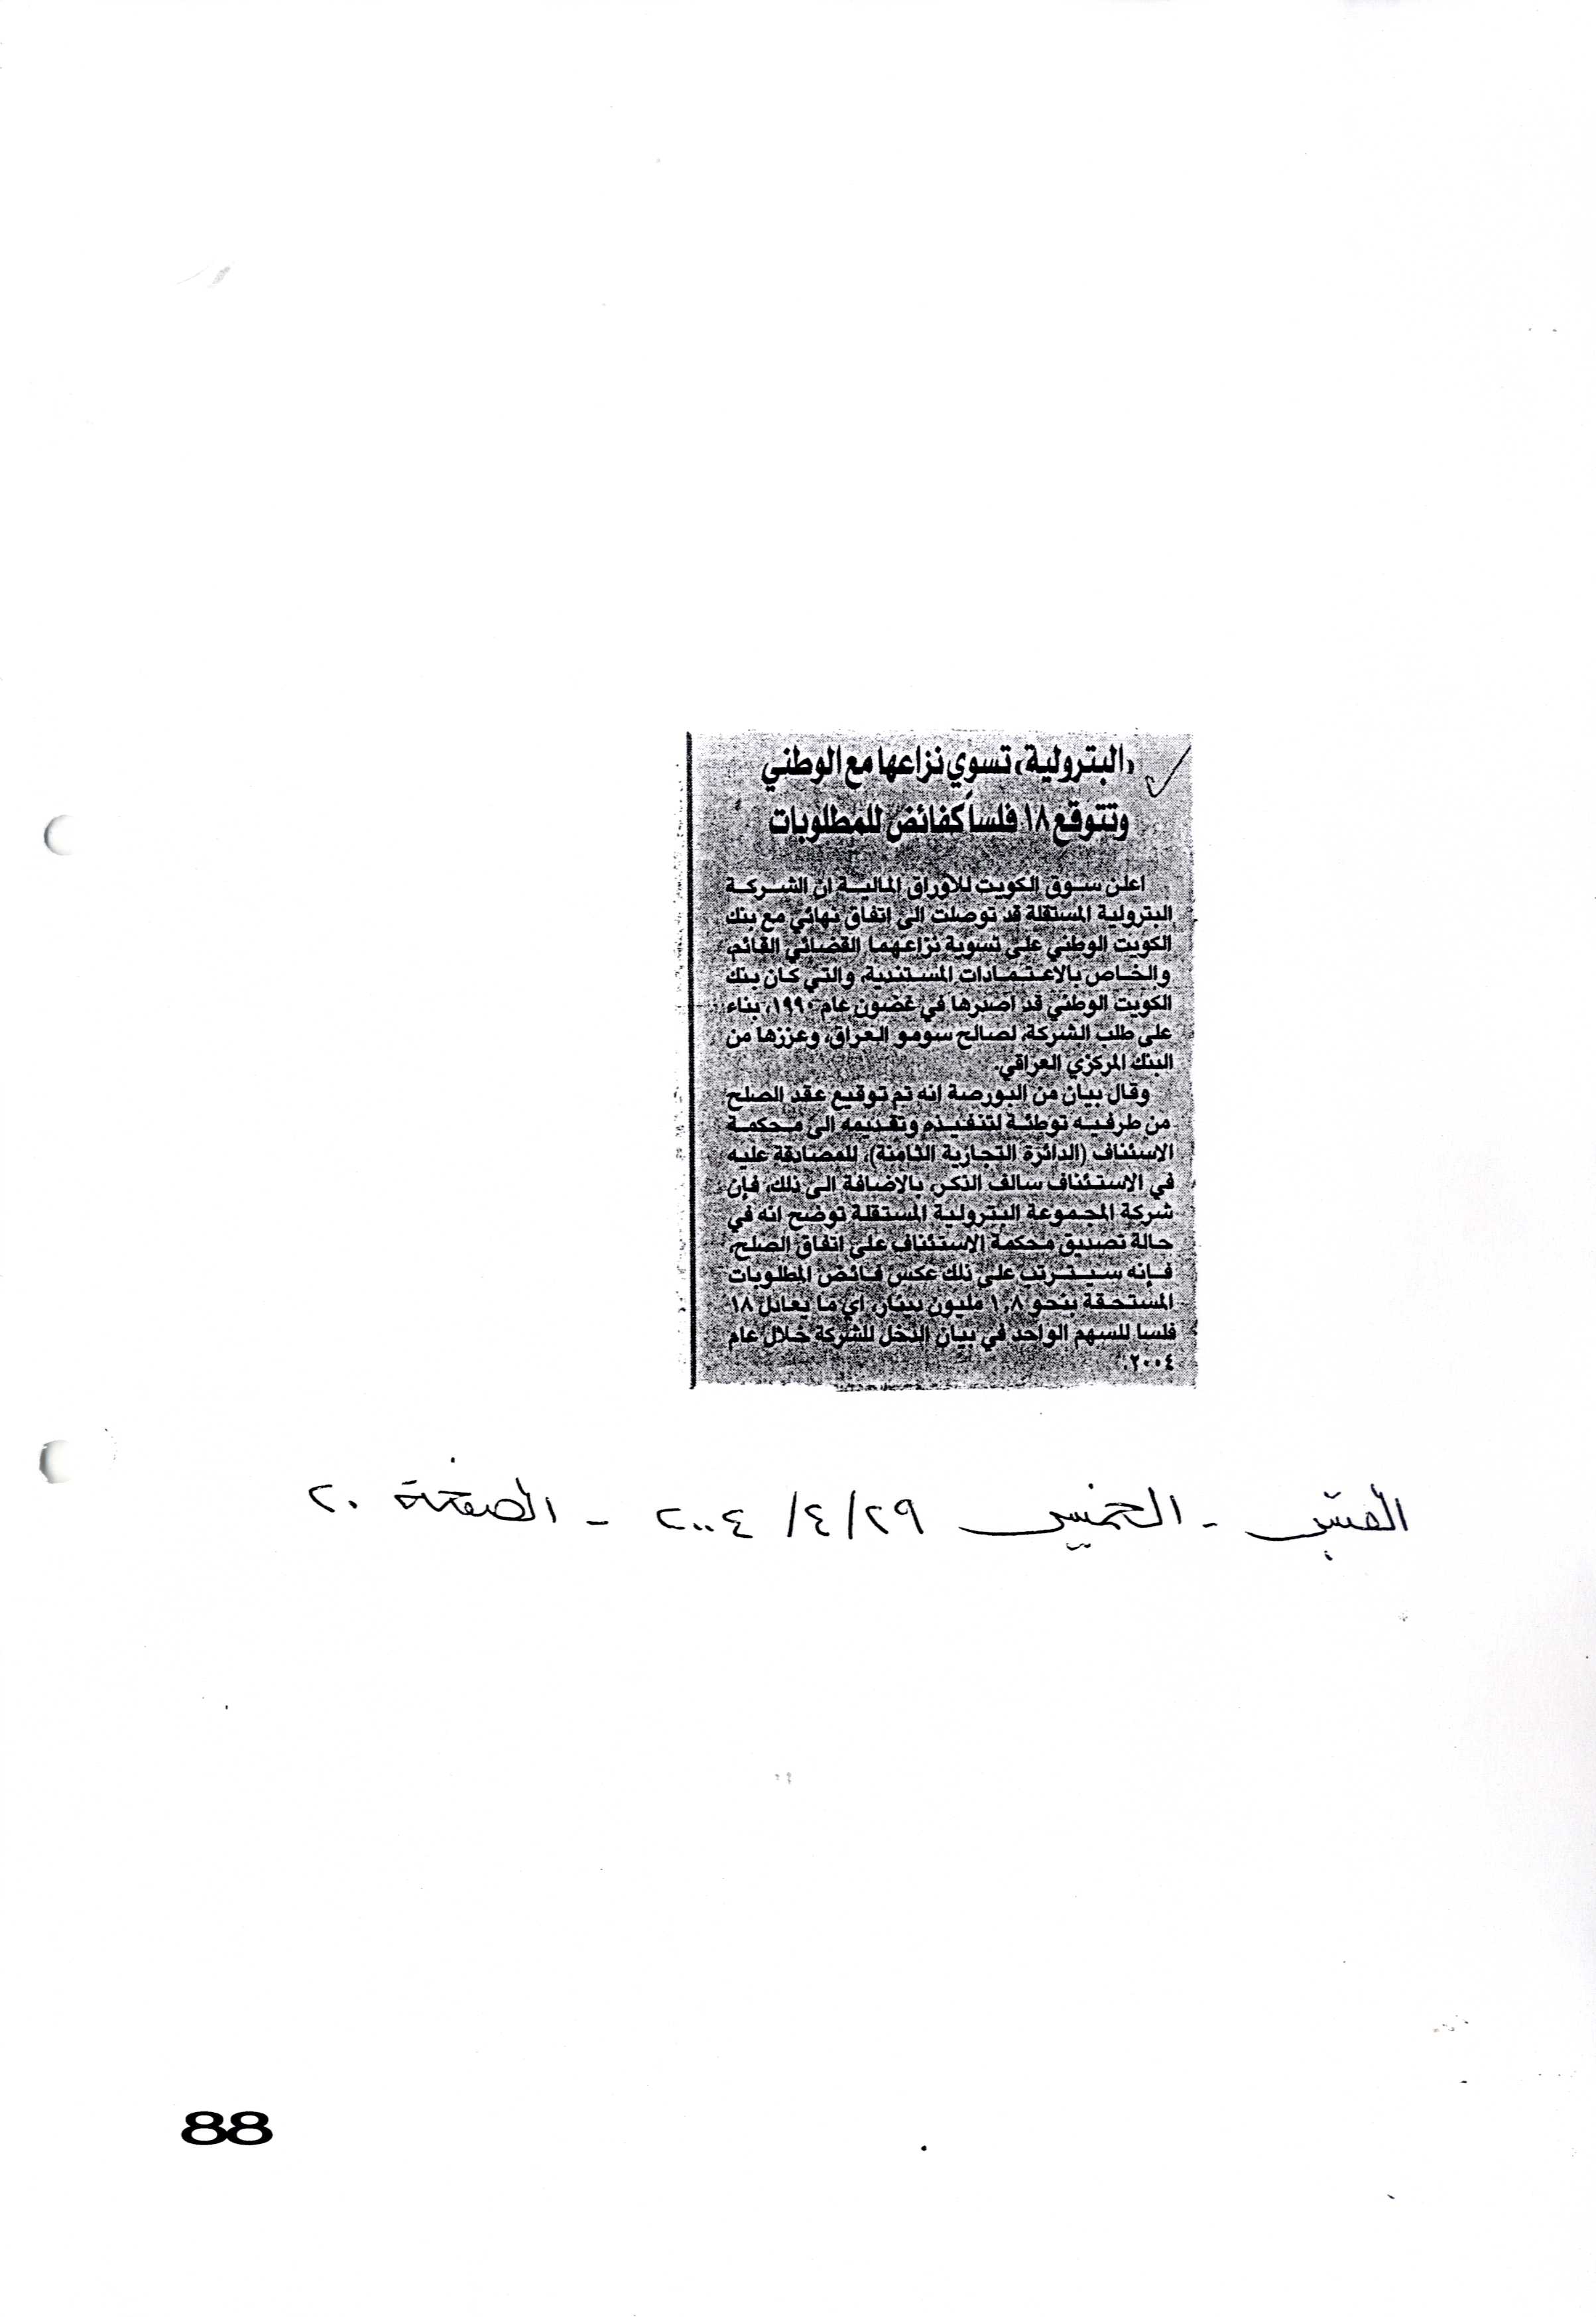 «البترولية» تسوي نزاعها مع الوطني
وتتوقع ١٨ فلساً كفائض للمطلوبات
اعلن سوق الكويت للأوراق المالية ان الشركة
البترولية المستقلة قد توصلت الى اتفاق نهائي مع بنك
الكويت الوطني على تسوية نزاعهما القضائي القائم،
والخاص بالاعتمادات المستندية، والتي كان بنك
الكويت الوطني قد اصدرها في غضون عام ١٩٩٠، بناء
على طلب الشركة، لصالح سومو العراق، وعززها من
البنك المركزي العراقي.
وقال بيان من البورصة انه تم توقيع عقد الصلح
من طرفيه توطئة لتنفيذه وتقديمه الى محكمة
الاستئناف (الدائرة التجارية الثامنة)، للمصادقة عليه
في الاستئناف سالف الذكر، بالاضافة الى ذلك، فإن
شركة المجموعة البترولية المستقلة توضح انه في
حالة تصديق محكمة الاستئناف على اتفاق الصلح،
فإنه سيترتب على ذلك عكس فائض المطلوبات
المستحقة بنحو ١,٨ مليون دينار، اي ما يعادل ١٨
فلسا للسهم الواحد في بيان الدخل للشركة خلال عام
٢٠٠٤.
القبس - الخميس ٢٩/٤/٢٠٠٤ - الصفحة ٢٠
88